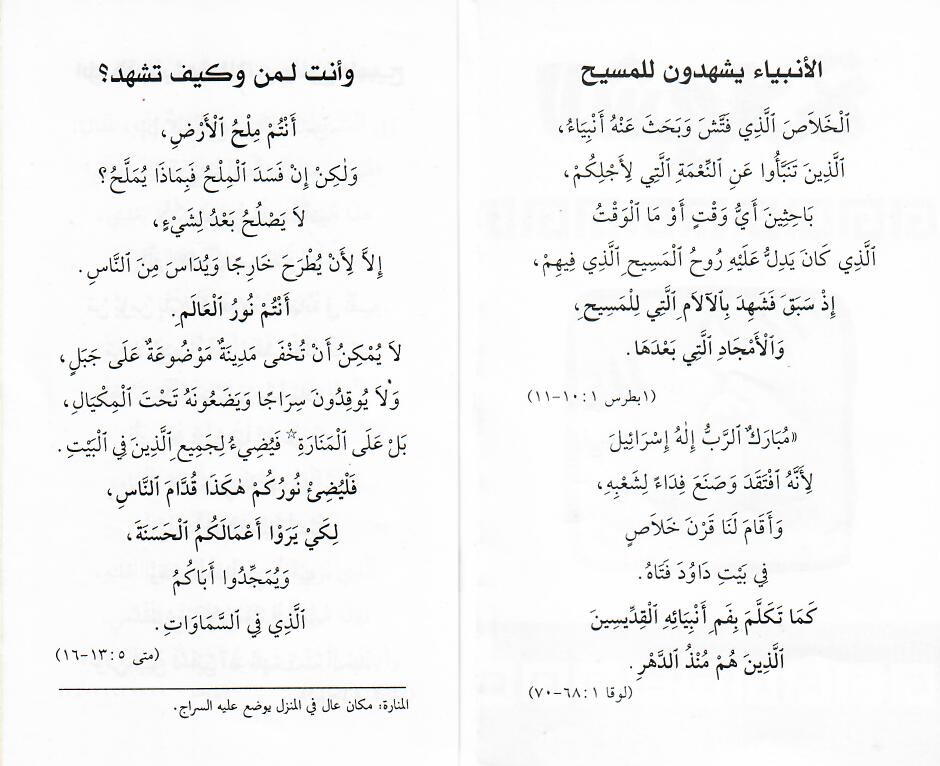 الأنبياء يشهدون للمسيح
اَلْخَلاَصَ الَّذِي فَتَّشَ وَبَحَثَ عَنْهُ أَنْبِيَاءُ،
اَلَّذِينَ تَنَبَّأُوا عَنِ النِّعْمَةِ الَّتِي لِأَجْلِكُمْ،
بَاحِثِينَ أَيُّ وَقْتٍ أَوْ مَا الْوَقْتُ
اَلَّذِي كَانَ يَدِلُّ عَلَيْهِ رُوحُ الْمَسِيحِ الَّذِي فِيهِمْ،
إِذْ سَبَقَ فَشَهِدَ بِالآلاَمِ الَّتِي لِلْمَسِيحِ،
وَالْأَمْجَادِ الَّتِي بَعْدَهَا.
(١بطرس ١٠:١-١١)
«مُبَارَكٌ الرَّبُّ إِلٰهُ إِسْرَائِيلَ
لِأَنَّهُ افْتَقَدَ وَصَنَعَ فِدَاءً لِشَعْبِهِ،
وَأَقَامَ لَنَا قَرْنَ خَلاَصٍ
فِي بَيْتِ دَاوُدَ فَتَاهُ.
كَمَا تَكَلَّمَ بِفَمِ أَنْبِيَائِهِ الْقِدِّيسِينَ
اَلَّذِينَ هُمْ مُنْذُ الدَّهْرِ.
(لوقا ٦٨:١-٧٠)
وأنت لمن وكيف تشهد؟
أَنْتُمْ مِلْحُ الْأَرْضِ،
وَلٰكِنْ إِنْ فَسَدَ الْمِلْحُ فَبِمَاذَا يُمَلَّحُ؟
لاَ يَصْلُحُ بَعْدُ لِشَيْءٍ،
إِلاَّ لِأَنْ يُطْرَحَ خَارِجًا وَيُدَاسَ مِنَ النَّاسِ.
أَنْتُمْ نُورُ الْعَالَمِ.
لاَ يُمْكِنُ أَنْ تُخْفَى مَدِينَةٌ مَوْضُوعَةٌ عَلَى جَبَلٍ،
وَلاَ يُوقِدُونَ سِرَاجًا وَيَضَعُونَهُ تَحْتَ الْمِكْيَالِ،
بَلْ عَلَى الْمَنَارَةِ☆ فَيُضِيءُ لِجَمِيعِ الَّذِينَ فِي الْبَيْتِ.
فَلْيُضِئْ نُورُكُمْ هٰكَذَا قُدَّامَ النَّاسِ،
لِكَيْ يَرَوْا أَعْمَالَكُمُ الْحَسَنَةَ،
وَيُمَجِّدُوا أَبَاكُمُ
اَلَّذِي فِي السَّمَاوَاتِ.
(متى ١٣:٥-١٦)
المنارة: مكان عال في المنزل يوضع عليه السراج.